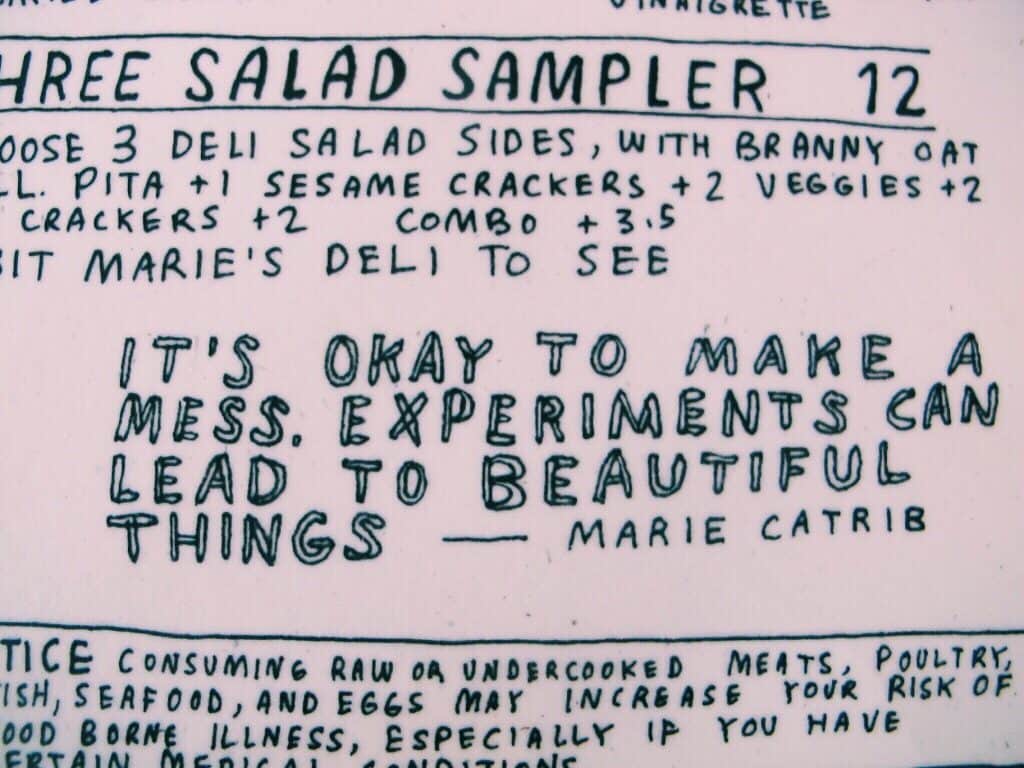 VINAIGRETTE
HREE SALAD SAMPLER 12
OOSE 3 DELI SALAD SIDES, WITH BRANNY OAT
LL. PITA +1 SESAME CRACKERS +2 VEGGIES +2
CRACKERS +2 COMBO +3.5
SIT MARIE'S DELI TO SEE
IT'S OKAY TO MAKE A
MESS. EXPERIMENTS CAN
LEAD TO BEAUTIFUL
THINGS — MARIE CATRIB
TICE CONSUMING RAW OR UNDERCOOKED MEATS, POULTRY,
ISH, SEAFOOD, AND EGGS MAY INCREASE YOUR RISK OF
OOD BORNE ILLNESS, ESPECIALLY IF YOU HAVE
ERTAIN MEDICAL CONDITIONS